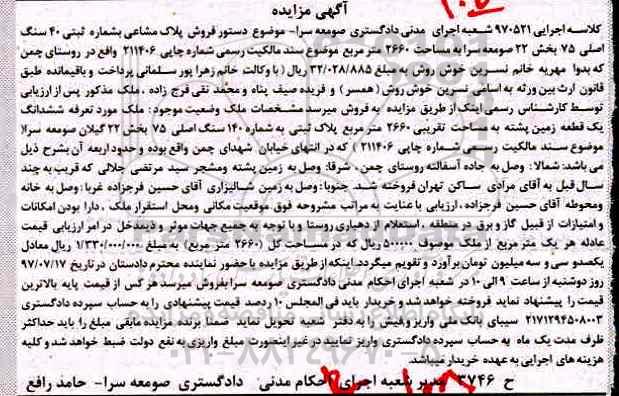 آگهی مزایده
کلاسه اجرایی ۹۷۰۵۲۱ شعبه اجرای مدنی دادگستری صومعه سرا- موضوع دستور فروش پلاک مشاعی بشماره ثبتی ۴۰ سنگ
اصلی ۷۵ بخش ۲۲ صومعه سرا به مساحت ۲۶۶۰ متر مربع موضوع سند مالکیت رسمی شماره چاپی ۲۱۱۴۰۶ واقع در روستای چمن
که بدوا مهریه خانم نسرین خوش روش به مبلغ ۳۲/۰۲۸/۸۸۵ ریال (با وکالت خانم زهرا پور سلمانی پرداخت و باقیمانده طبق
قانون ارث بین ورثه به اسامی نسرین خوش روش ( همسر ) و فریده صیف پناه و محمد نقی فرج زاده ، ملک مذکور پس از ارزیابی
توسط کارشناس رسمی اینک از طریق مزایده به فروش میرسد مشخصات ملک وضعیت موجود : ملک مورد تعرفه ششدانگ
یک قطعه زمین پشته به مساحت تقریبی ۲۶۶۰ متر مربع پلاک ثبتی به شماره ۱۴۰ سنگ اصلی ۷۵ بخش ۲۲ گیلان صومعه سرا(
موضوع سند مالکیت رسمی شماره چاپی ۲۱۱۴۰۶ ) که در انتهای خیابان شهدای چمن واقع بوده و حدود اربعه آن بشرح ذیل
می باشد: شمالا : وصل به جاده آسفالته روستای چمن ، شرقا: وصل به زمین پشته ومشجر سید مرتضی جلالی که قریب به چند
سال قبل به آقای مرادی ساکن تهران فروخته شد. جنوبا: وصل به زمین شالیزاری آقای حسین فرجزاده غربا: وصل به خانه
ومحوطه آقای حسین فرجزاده ، ارزیابی با عنایت به مراتب مشروحه فوق موقعیت مکانی ومحل استقرار ملک ، دارا بودن امکانات
و امتیازات از قبیل گاز و برق در منطقه ، استعلام از دهیاری روستا و با توجه به جمیع جهات موثر و ذیمدخل در امر ارزیابی قیمت
عادله هر یک متر مربع از ملک موصوف ۵۰۰۰۰۰ ریال که در مساحت کل (۲۶۶۰ متر مربع) به مبلغ ۱/۳۳۰/۰۰۰/۰۰۰ ریال معادل
یکصدو سی و سه میلیون تومان برآورد و تقویم میگردد. اینکه از طریق مزایده با حضور نماینده محترم دادستان در تاریخ ۹۷/۰۷/۱۷
روز دوشنبه از ساعت ۹ الی ۱۰ در شعبه اجرای احکام مدنی دادگستری صومعه سرا بفروش میرسد هر کس از قیمت پایه بالاترین
قیمت را پیشنهاد نماید فروخته خواهد شد و خریدار باید فی المجلس ۱۰ درصد قیمت پیشنهادی را به حساب سپرده دادگستری
۲۱۷۱۲۹۴۵۰۸۰۰۳ سیبای بانک ملی واریز و فیش را به دفتر شعبه تحویل نماید ضمنا برنده مزایده مابقی مبلغ را باید حداکثر
ظرف مدت یک ماه به حساب سپرده دادگستری واریز نمایید در غیر اینصورت مبلغ واریزی به نفع دولت ضبط خواهد شد و کلیه
هزینه های اجرایی به عهده خریدار میباشد.
ح ۳۷۴۶ مدیر شعبه اجرای احکام مدنی دادگستری صومعه سرا- حامد رافع